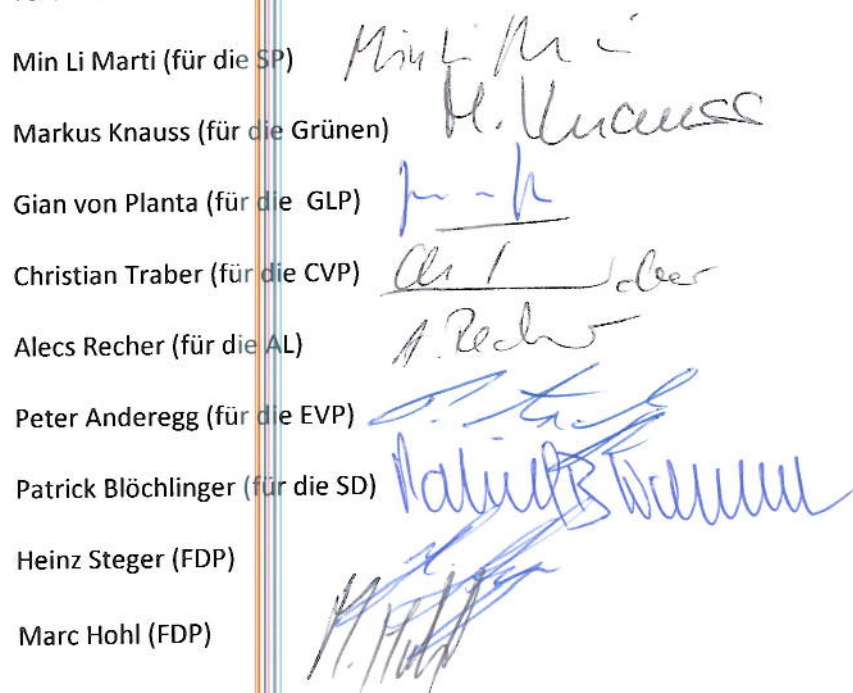 Min Li Marti (für die SP) Min Li
Markus Knauss (für die Grünen) M. Knauss
Gian von Planta (für die GLP)
Christian Traber (für die CVP)
Alecs Recher (für die AL) A. Recher
Peter Anderegg (für die EVP)
Patrick Blöchlinger (für die SD)
Heinz Steger (FDP)
Marc Hohl (FDP) M. Hohl